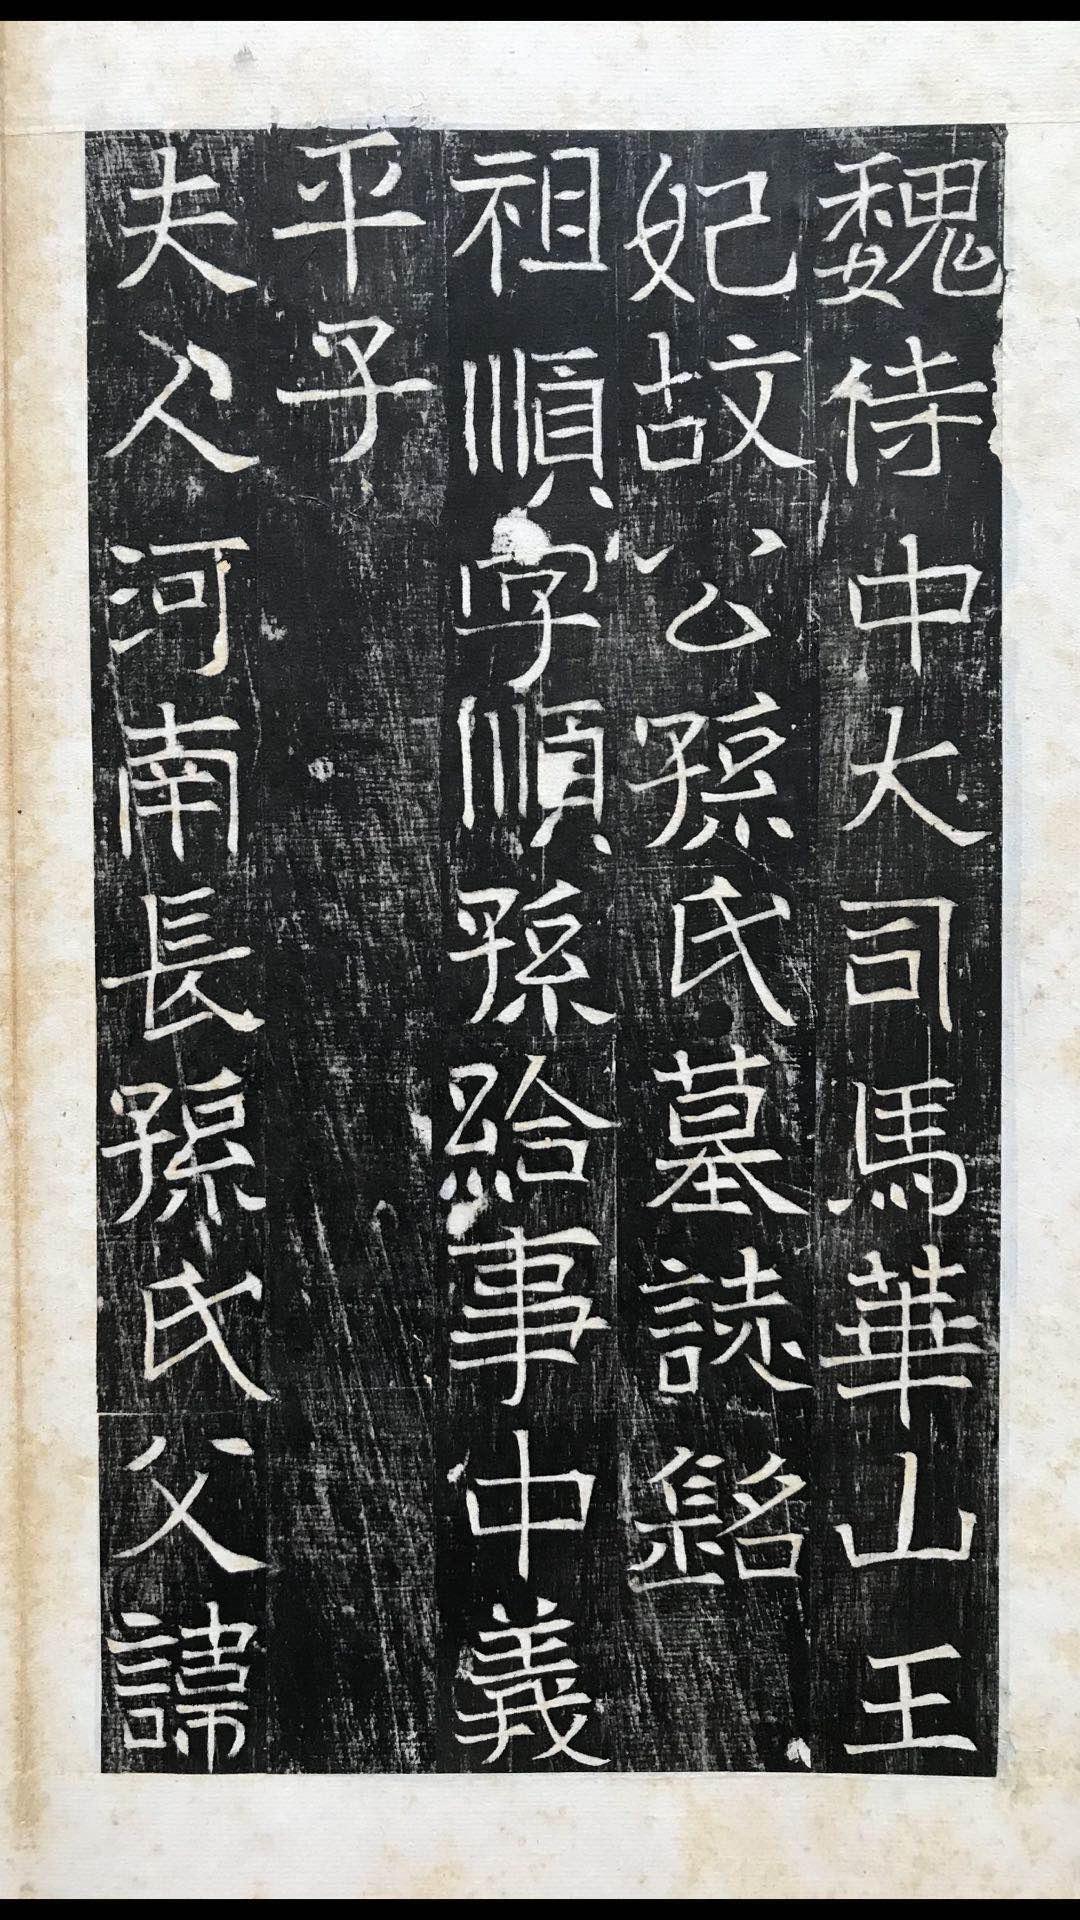 魏侍中大司馬華山王
妃故公孫氏墓誌銘
祖順字順孫給事中義
平子
夫人河南長孫氏父諱